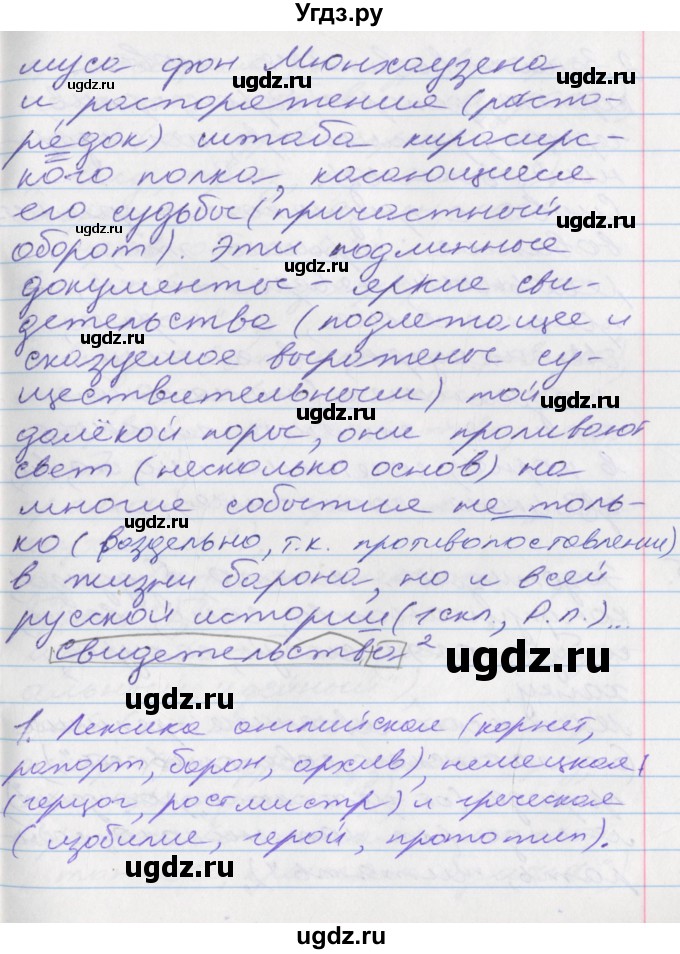 Угдз.ру
муса фон Мюнхаузена
и распоряжения (распо-
рядок) штаба кирасирс-
кого полка, касающиеся
его судьбы (причастный
оборот). Эти подлинные
документы – яркие сви-
детельства (подлежащее и
сказуемое выражены су-
ществительными) той
далёкой поры, они проливают
свет (несколько основ) на
многие события не толь-
ко (раздельно, т.к. противопоставлении)
в жизни барона, но и всей
русской истории (1 скл., Р.п.)...
свидетельства ²
1. Лексика английская (корнет,
рапорт, барон, архив), немецкая
(герцог, ротмистр) и греческая
(изобилие, герой, прототип).
ugdz.ru